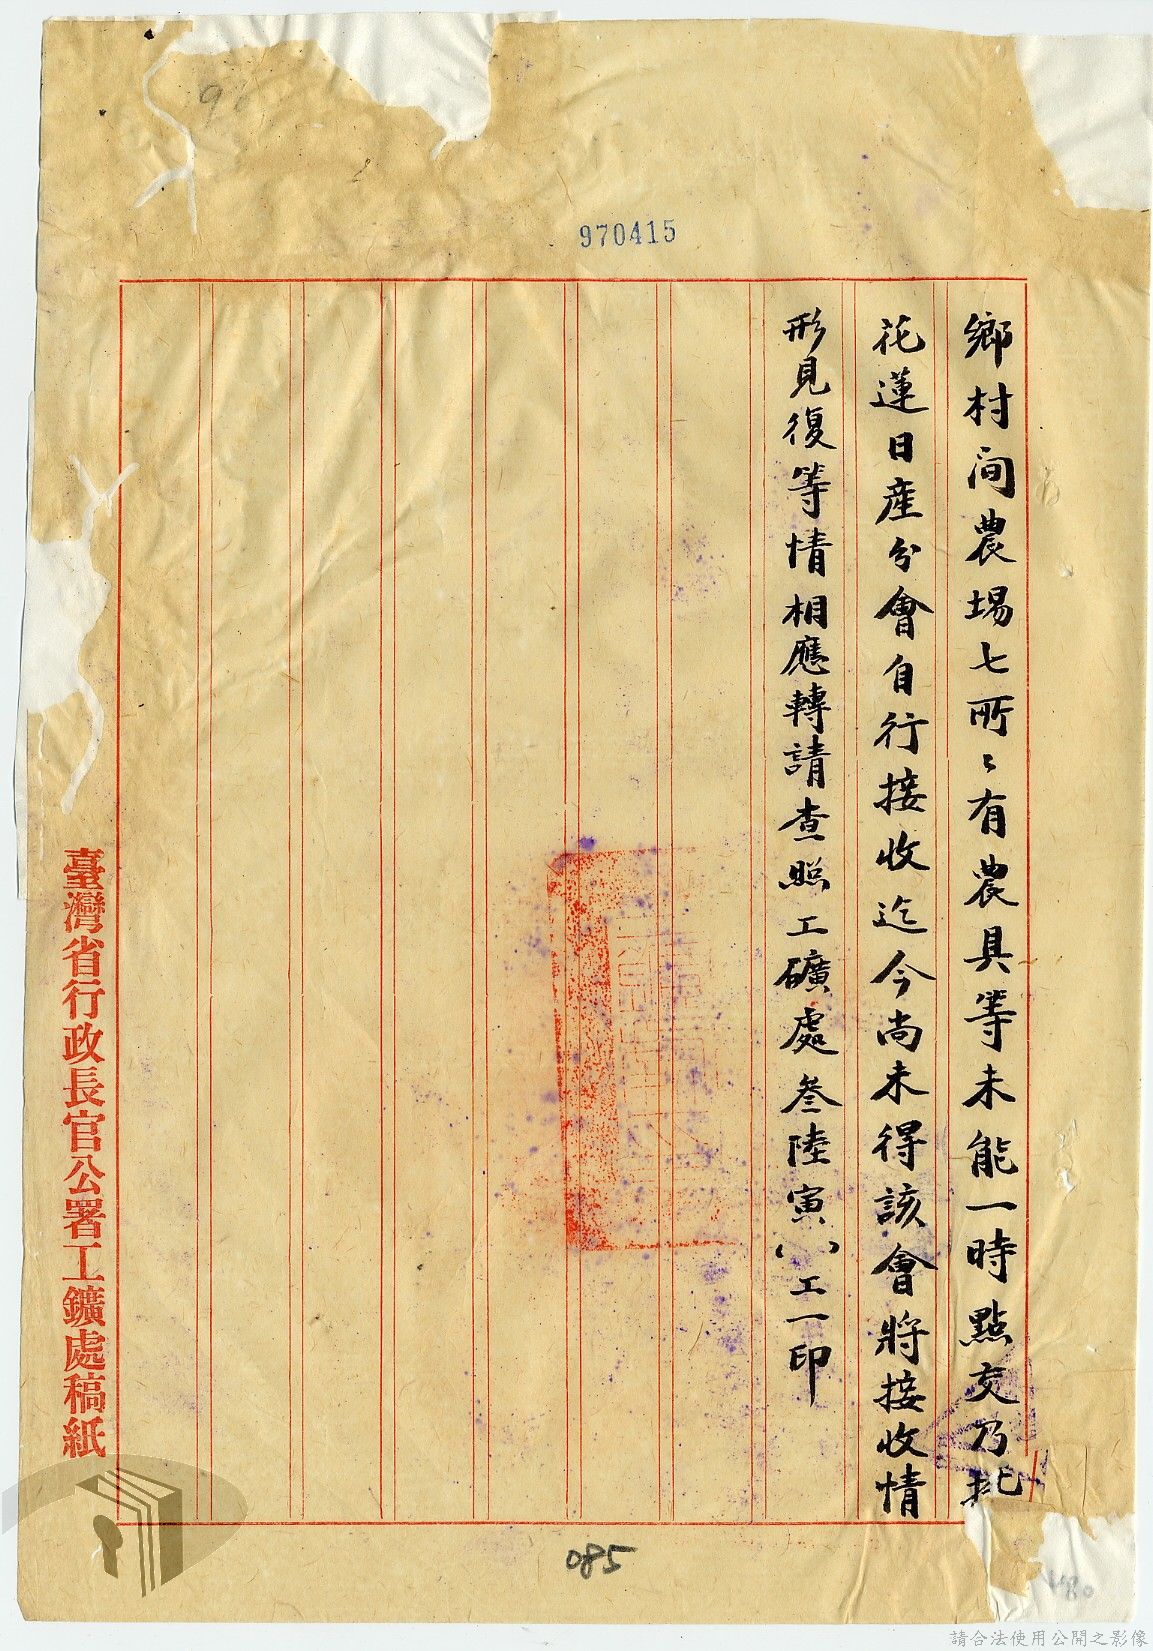 970415
鄉村间農場七所〻有農具等未能一時點交乃批
花蓮日產分會自行接收迄今尚未得該會將接收情
形見復等情相應轉請查照工礦處叁陸寅()工一印
臺灣省行政長官公署工鑛處稿紙
085
請合法使用公開之影像